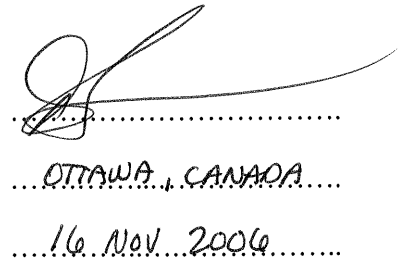 OTTAWA, CANADA
16 NOV 2006